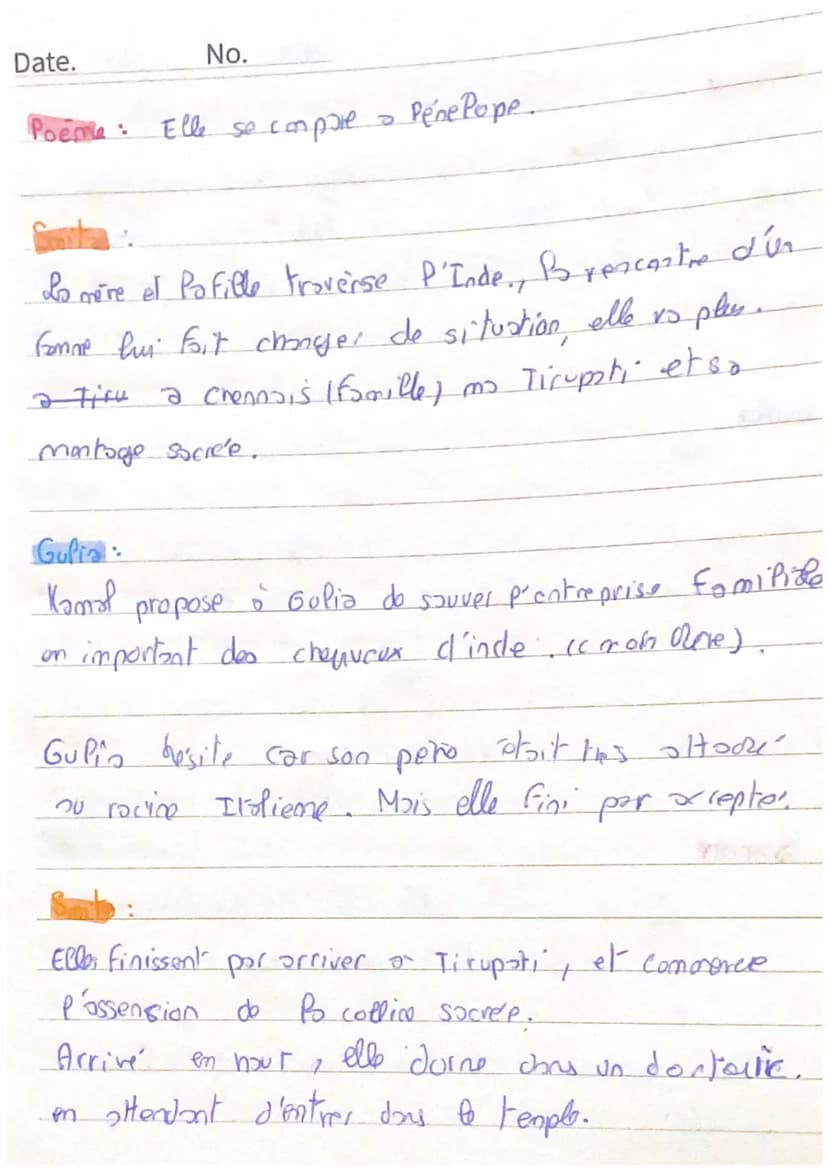 Date. No.
Poème : Elle se compare a Pénélope.
Smita :
La mère et la fille traverse l'Inde., la rencontre d'un
femme lui fait changer de situation, elle va plus.
a Tiru a Chennais (famille) ma Tirupati et sa
montage sacrée.
Gulia :
Kamal propose à Gulia de sauver l'entreprise familiale
en important des cheuveux d'inde.
Gulia hésite car son père était très attaché
au racine Italieme. Mais elle fini par accepter.
Smita :
Elles finissent par arriver a Tirupati, et commence
l'assension de la colline sacrée.
Arrivé en haut, elle dorme dans un dortoire.
en attendant d'entrer dans le temple.